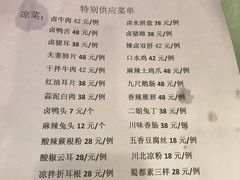 特别供应菜单
凉菜：
卤牛肉 42 元/例 卤水拼盘 78 元/例
卤鸭舌 48 元/例 卤猪蹄 38 元/例
卤猪耳 38 元/例 辣卤双拼 42 元/例
夫妻肺片 48 元/例 口水鸡 42 元/例
干拌牛肉 42 元/例 麻辣土鸡爪 48元/例
红油耳片 38 元/例 九尺鹅肠 48元/例
蒜泥白肉 38 元/例 香辣雁唇 48元/例
卤鸭头 7 元/个 二姐兔丁 38元/例
麻辣兔头 12 元/个 川味香肠 38元/例
酸辣蕨根粉 28 元/例 五香豆腐丝 18元/例
酸椒云耳 28元/例 川北凉粉 18元/例
凉拌折耳根 28元/例 蜀都素三样 28元/例